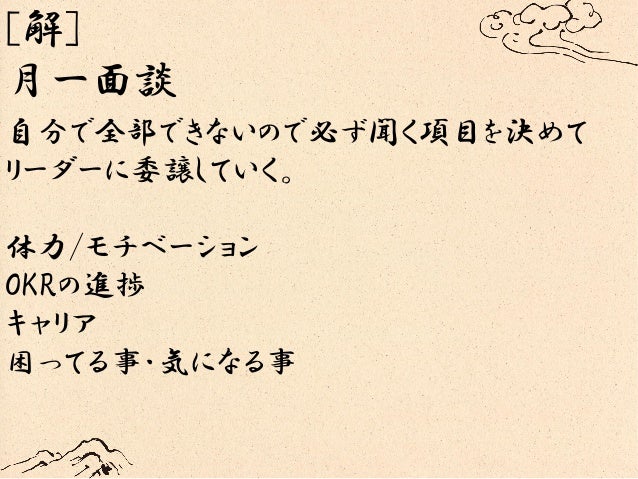 [解]
月一面談
自分で全部できないので必ず聞く項目を決めて
リーダーに委譲していく。
体力/モチベーション
OKRの進捗
キャリア
困ってる事・気になる事